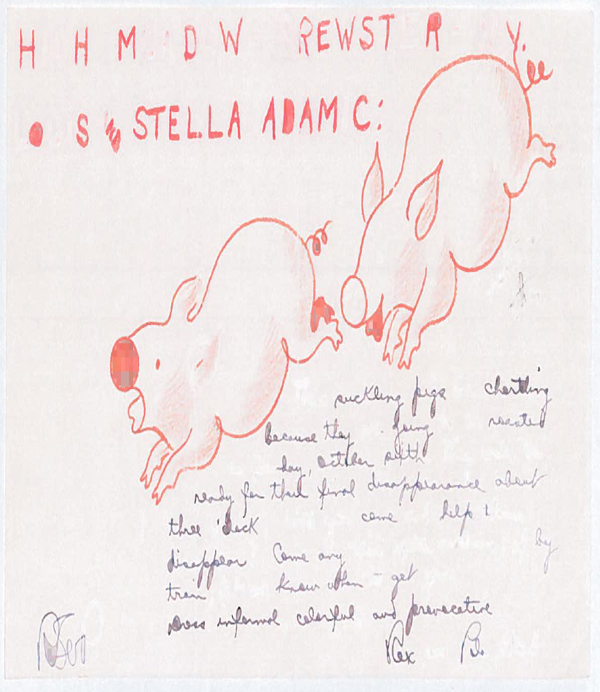 H H M D W REWST R Y.
S STELLA ADAM C:
suckling pigs chortling
because they going roasted
day, October sixth
ready for their final disappearance about
three 'clock come help !
disappear Come any by
train know when get
Dress informal colorful and provocative
Rex